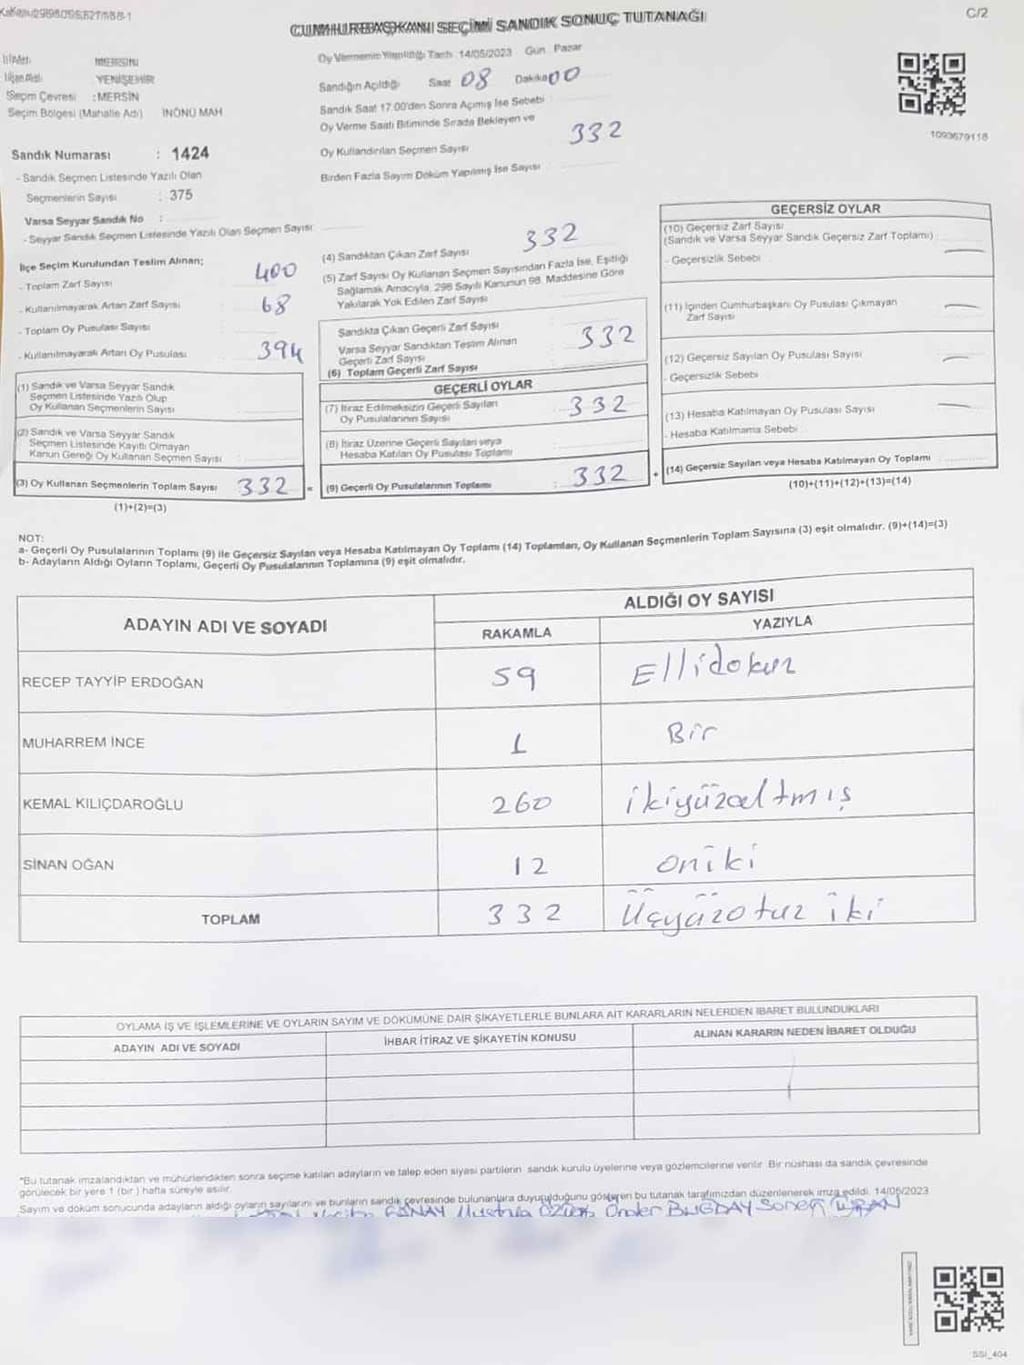 C/2
CUMHURBAŞKANI SEÇİMİ SANDIK SONUÇ TUTANAĞI
İli Adı MERSİN
İlçe Adı YENİŞEHİR
Seçim Çevresi : MERSİN
Seçim Bölgesi (Mahalle Adı) İNÖNÜ MAH
Sandık Numarası : 1424
- Sandık Seçmen Listesinde Yazılı Olan
Seçmenlerin Sayısı : 375
Varsa Seyyar Sandık No :
- Seyyar Sandık Seçmen Listesinde Yazılı Olan Seçmen Sayısı
Oy Vermenin Yapıldığı Tarih 14/05/2023 Gün Pazar
Sandığın Açıldığı Saat 08 Dakika 00
Sandık Saat 17.00'den Sonra Açımış İse Sebebi
Oy Verme Saati Bitiminde Sırada Bekleyen ve
Oy Kullandırılan Seçmen Sayısı 332
Birden Fazla Sayım Döküm Yapılmış İse Sayısı
1093679118
İlçe Seçim Kurulundan Teslim Alınan;
- Toplam Zarf Sayısı 400
- Kullanılmayarak Artan Zarf Sayısı 68
- Toplam Oy Pusulası Sayısı
- Kullanılmayarak Artan Oy Pusulası 394
(1) Sandık ve Varsa Seyyar Sandık
Seçmen Listesinde Yazılı Olup
Oy Kullanan Seçmenlerin Sayısı
(2) Sandık ve Varsa Seyyar Sandık
Seçmen Listesinde Kayıtlı Olmayan
Kanun Gereği Oy Kullanan Seçmen Sayısı
(3) Oy Kullanan Seçmenlerin Toplam Sayısı 332 =
(1)+(2)=(3)
(4) Sandıktan Çıkan Zarf Sayısı 332
(5) Zarf Sayısı Oy Kullanan Seçmen Sayısından Fazla İse, Eşitliği
Sağlamak Amacıyla, 298 Sayılı Kanunun 98. Maddesine Göre
Yakılarak Yok Edilen Zarf Sayısı
Sandıkta Çıkan Geçerli Zarf Sayısı
Varsa Seyyar Sandıktan Teslim Alınan
Geçerli Zarf Sayısı
(6) Toplam Geçerli Zarf Sayısı 332
GEÇERLİ OYLAR
(7) İtiraz Edilmeksizin Geçerli Sayılan
Oy Pusulalarının Sayısı 332
(8) İtiraz Üzerine Geçerli Sayılan veya
Hesaba Katılan Oy Pusulası Toplamı
(9) Geçerli Oy Pusulalarının Toplamı : 332 +
GEÇERSİZ OYLAR
(10) Geçersiz Zarf Sayısı
(Sandık ve Varsa Seyyar Sandık Geçersiz Zarf Toplamı)
- Geçersizlik Sebebi
(11) İçinden Cumhurbaşkanı Oy Pusulası Çıkmayan
Zarf Sayısı
(12) Geçersiz Sayılan Oy Pusulası Sayısı
- Geçersizlik Sebebi
(13) Hesaba Katılmayan Oy Pusulası Sayısı
- Hesaba Katılmama Sebebi
(14) Geçersiz Sayılan veya Hesaba Katılmayan Oy Toplamı
(10)+(11)+(12)+(13)=(14)
NOT:
a- Geçerli Oy Pusulalarının Toplamı (9) ile Geçersiz Sayılan veya Hesaba Katılmayan Oy Toplamı (14) Toplamları, Oy Kullanan Seçmenlerin Toplam Sayısına (3) eşit olmalıdır. (9)+(14)=(3)
b- Adayların Aldığı Oyların Toplamı, Geçerli Oy Pusulalarının Toplamına (9) eşit olmalıdır.
ADAYIN ADI VE SOYADI ALDIĞI OY SAYISI
RAKAMLA YAZIYLA
RECEP TAYYİP ERDOĞAN 59 Ellidokuz
MUHARREM İNCE 1 Bir
KEMAL KILIÇDAROĞLU 260 ikiyüzaltmış
SİNAN OĞAN 12 oniki
TOPLAM 332 Üçyüzotuz iki
OYLAMA İŞ VE İŞLEMLERİNE VE OYLARIN SAYIM VE DÖKÜMÜNE DAİR ŞİKAYETLERLE BUNLARA AİT KARARLARIN NELERDEN İBARET BULUNDUKLARI
ADAYIN ADI VE SOYADI İHBAR İTİRAZ VE ŞİKAYETİN KONUSU ALINAN KARARIN NEDEN İBARET OLDUĞU
*Bu tutanak imzalandıktan ve mühürlendikten sonra seçime katılan adayların ve talep eden siyasi partilerin sandık kurulu üyelerine veya gözlemcilerine verilir. Bir nüshası da sandık çevresinde
görülecek bir yere 1 (bir) hafta süreyle asılır.
Sayım ve döküm sonucunda adayların aldığı oyların sayılarını ve bunların sandık çevresinde bulunanlara duyurulduğunu gösteren bu tutanak tarafımızdan düzenlenerek imza edildi. 14/05/2023
Mustafa Önder BUĞDAY Soner
SSI_404